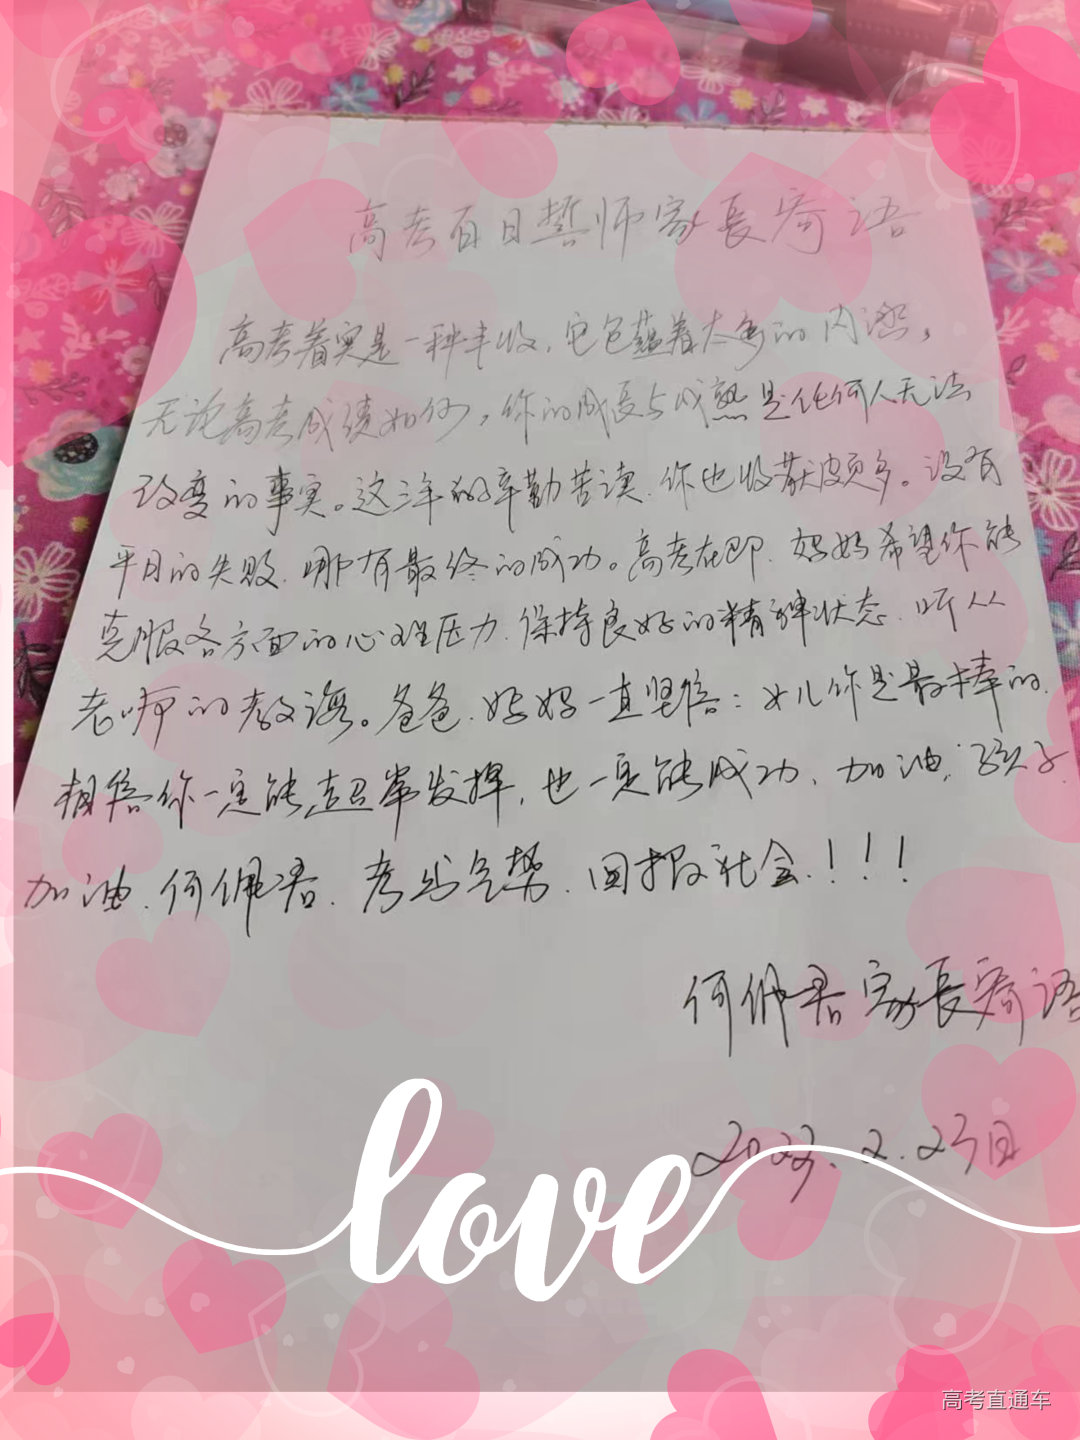 高考百日誓师家长寄语
高考着实是一种丰收,它包蕴着太多的内涵,
无论高考成绩如何,你的成长与成熟是任何人无法
改变的事实。这三年的辛勤苦读,你也收获颇多。没有
平日的失败,哪有最终的成功。高考在即,妈妈希望你能
克服各方面的心理压力,保持良好的精神状态,听从
老师的教诲。爸爸、妈妈一直坚信:女儿你是最棒的,
相信你一定能超常发挥,也一定能成功,加油,孩子,
加油,何佩,考出气势,回报社会!!!
何佩家长寄语
2023.2.23日
love
高考直通车